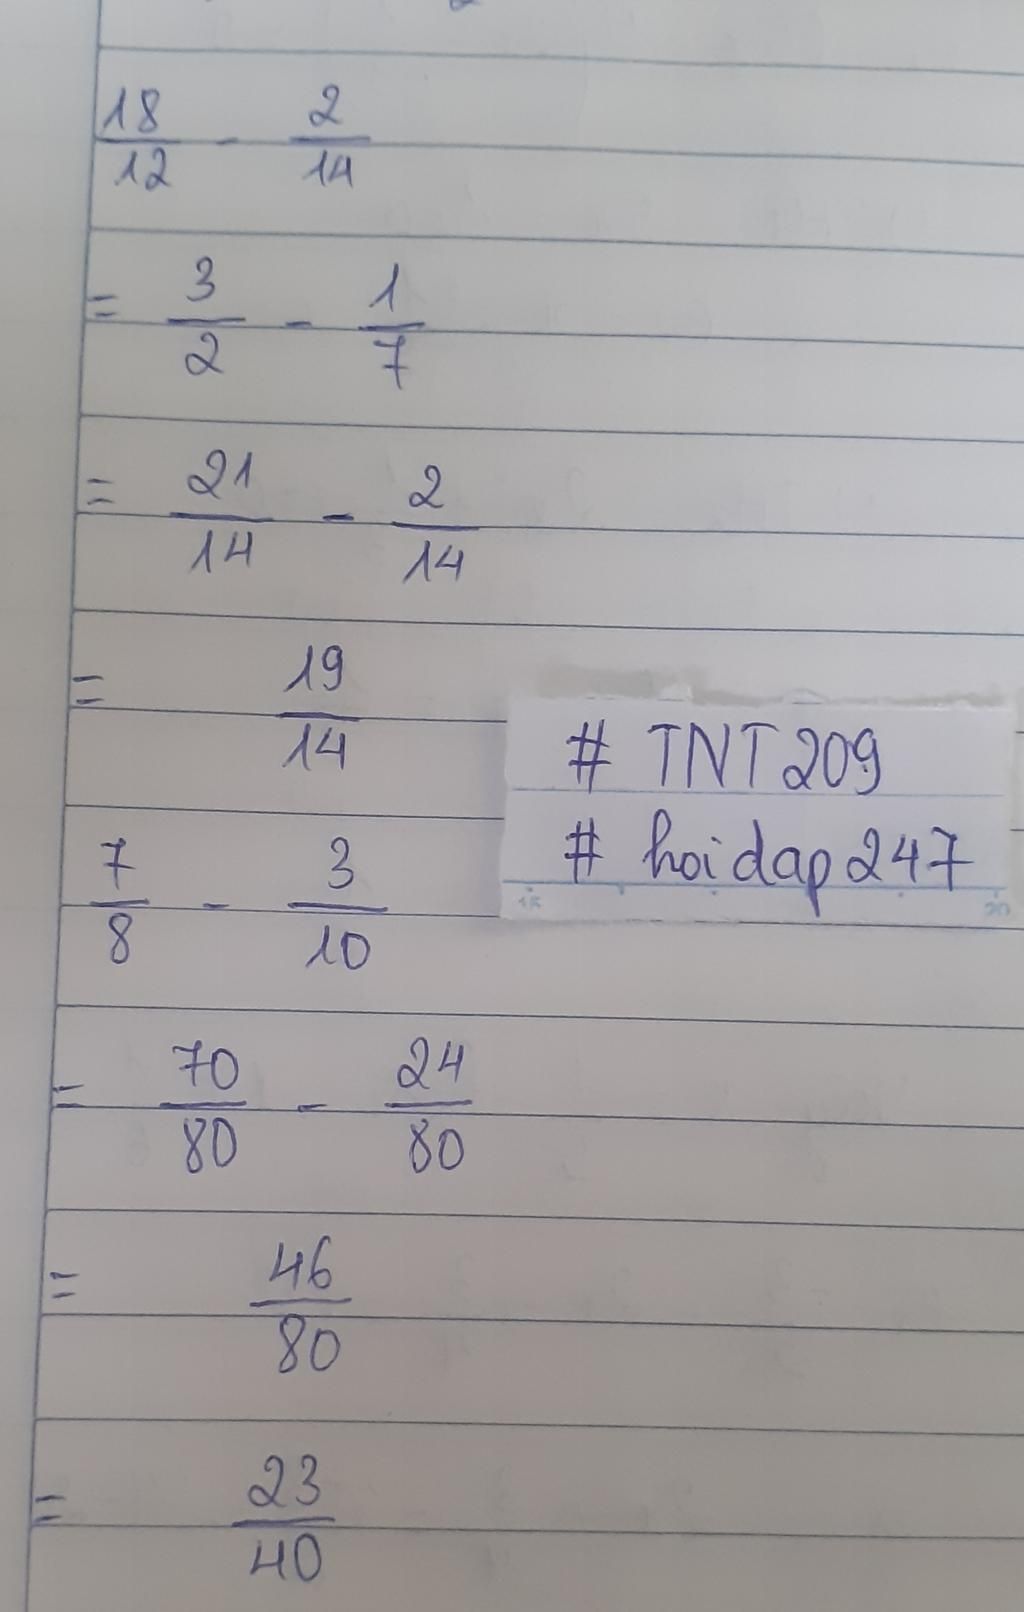 18/12 - 2/14
= 3/2 - 1/7
= 21/14 - 2/14
= 19/14
# TNT209
# hoidap247
15 20
7/8 - 3/10
= 70/80 - 24/80
= 46/80
= 23/40